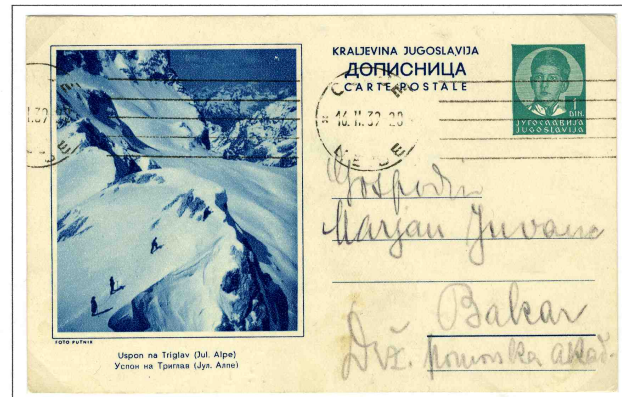 KRALJEVINA JUGOSLAVIJA
ДОПИСНИЦА
CARTE POSTALE
1
DIN.
ЈУГОСЛАВИЈА
JUGOSLAVIJA
16. II. 39 20
Gospodin
Marjan Juvanc
Bakar
Drž. pomorska akad.
FOTO PUTNIK
Uspon na Triglav (Jul. Alpe)
Успон на Триглав (Јул. Алпе)